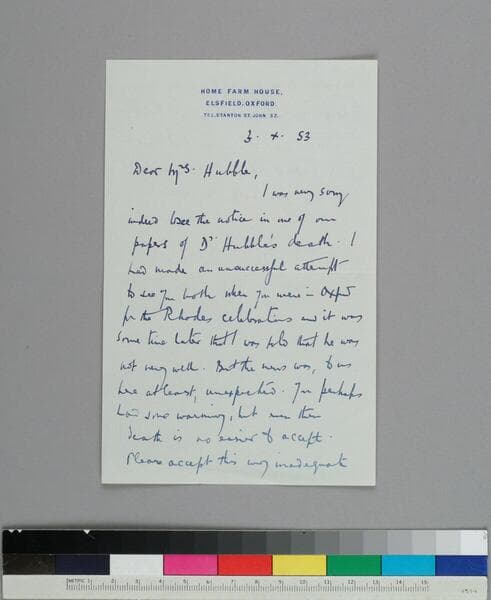 HOME FARM HOUSE,
ELSFIELD, OXFORD.
TEL. STANTON ST. JOHN 32.
3. X. 53
Dear Mrs. Hubble,
I was very sorry
indeed to see the notice in one of our
papers of Dr. Hubble's death. I
had made an unsuccessful attempt
to see you both when you were in Oxford
for the Rhodes celebrations and it was
some time later that I was told that he was
not very well. But the news was, to us
here at least, unexpected. You perhaps
had some warning, but even then
death is no easier to accept.
Please accept this very inadequate
METRIC 1 2 3 4 5 6 7 8 9 10 11 12 13 14 15